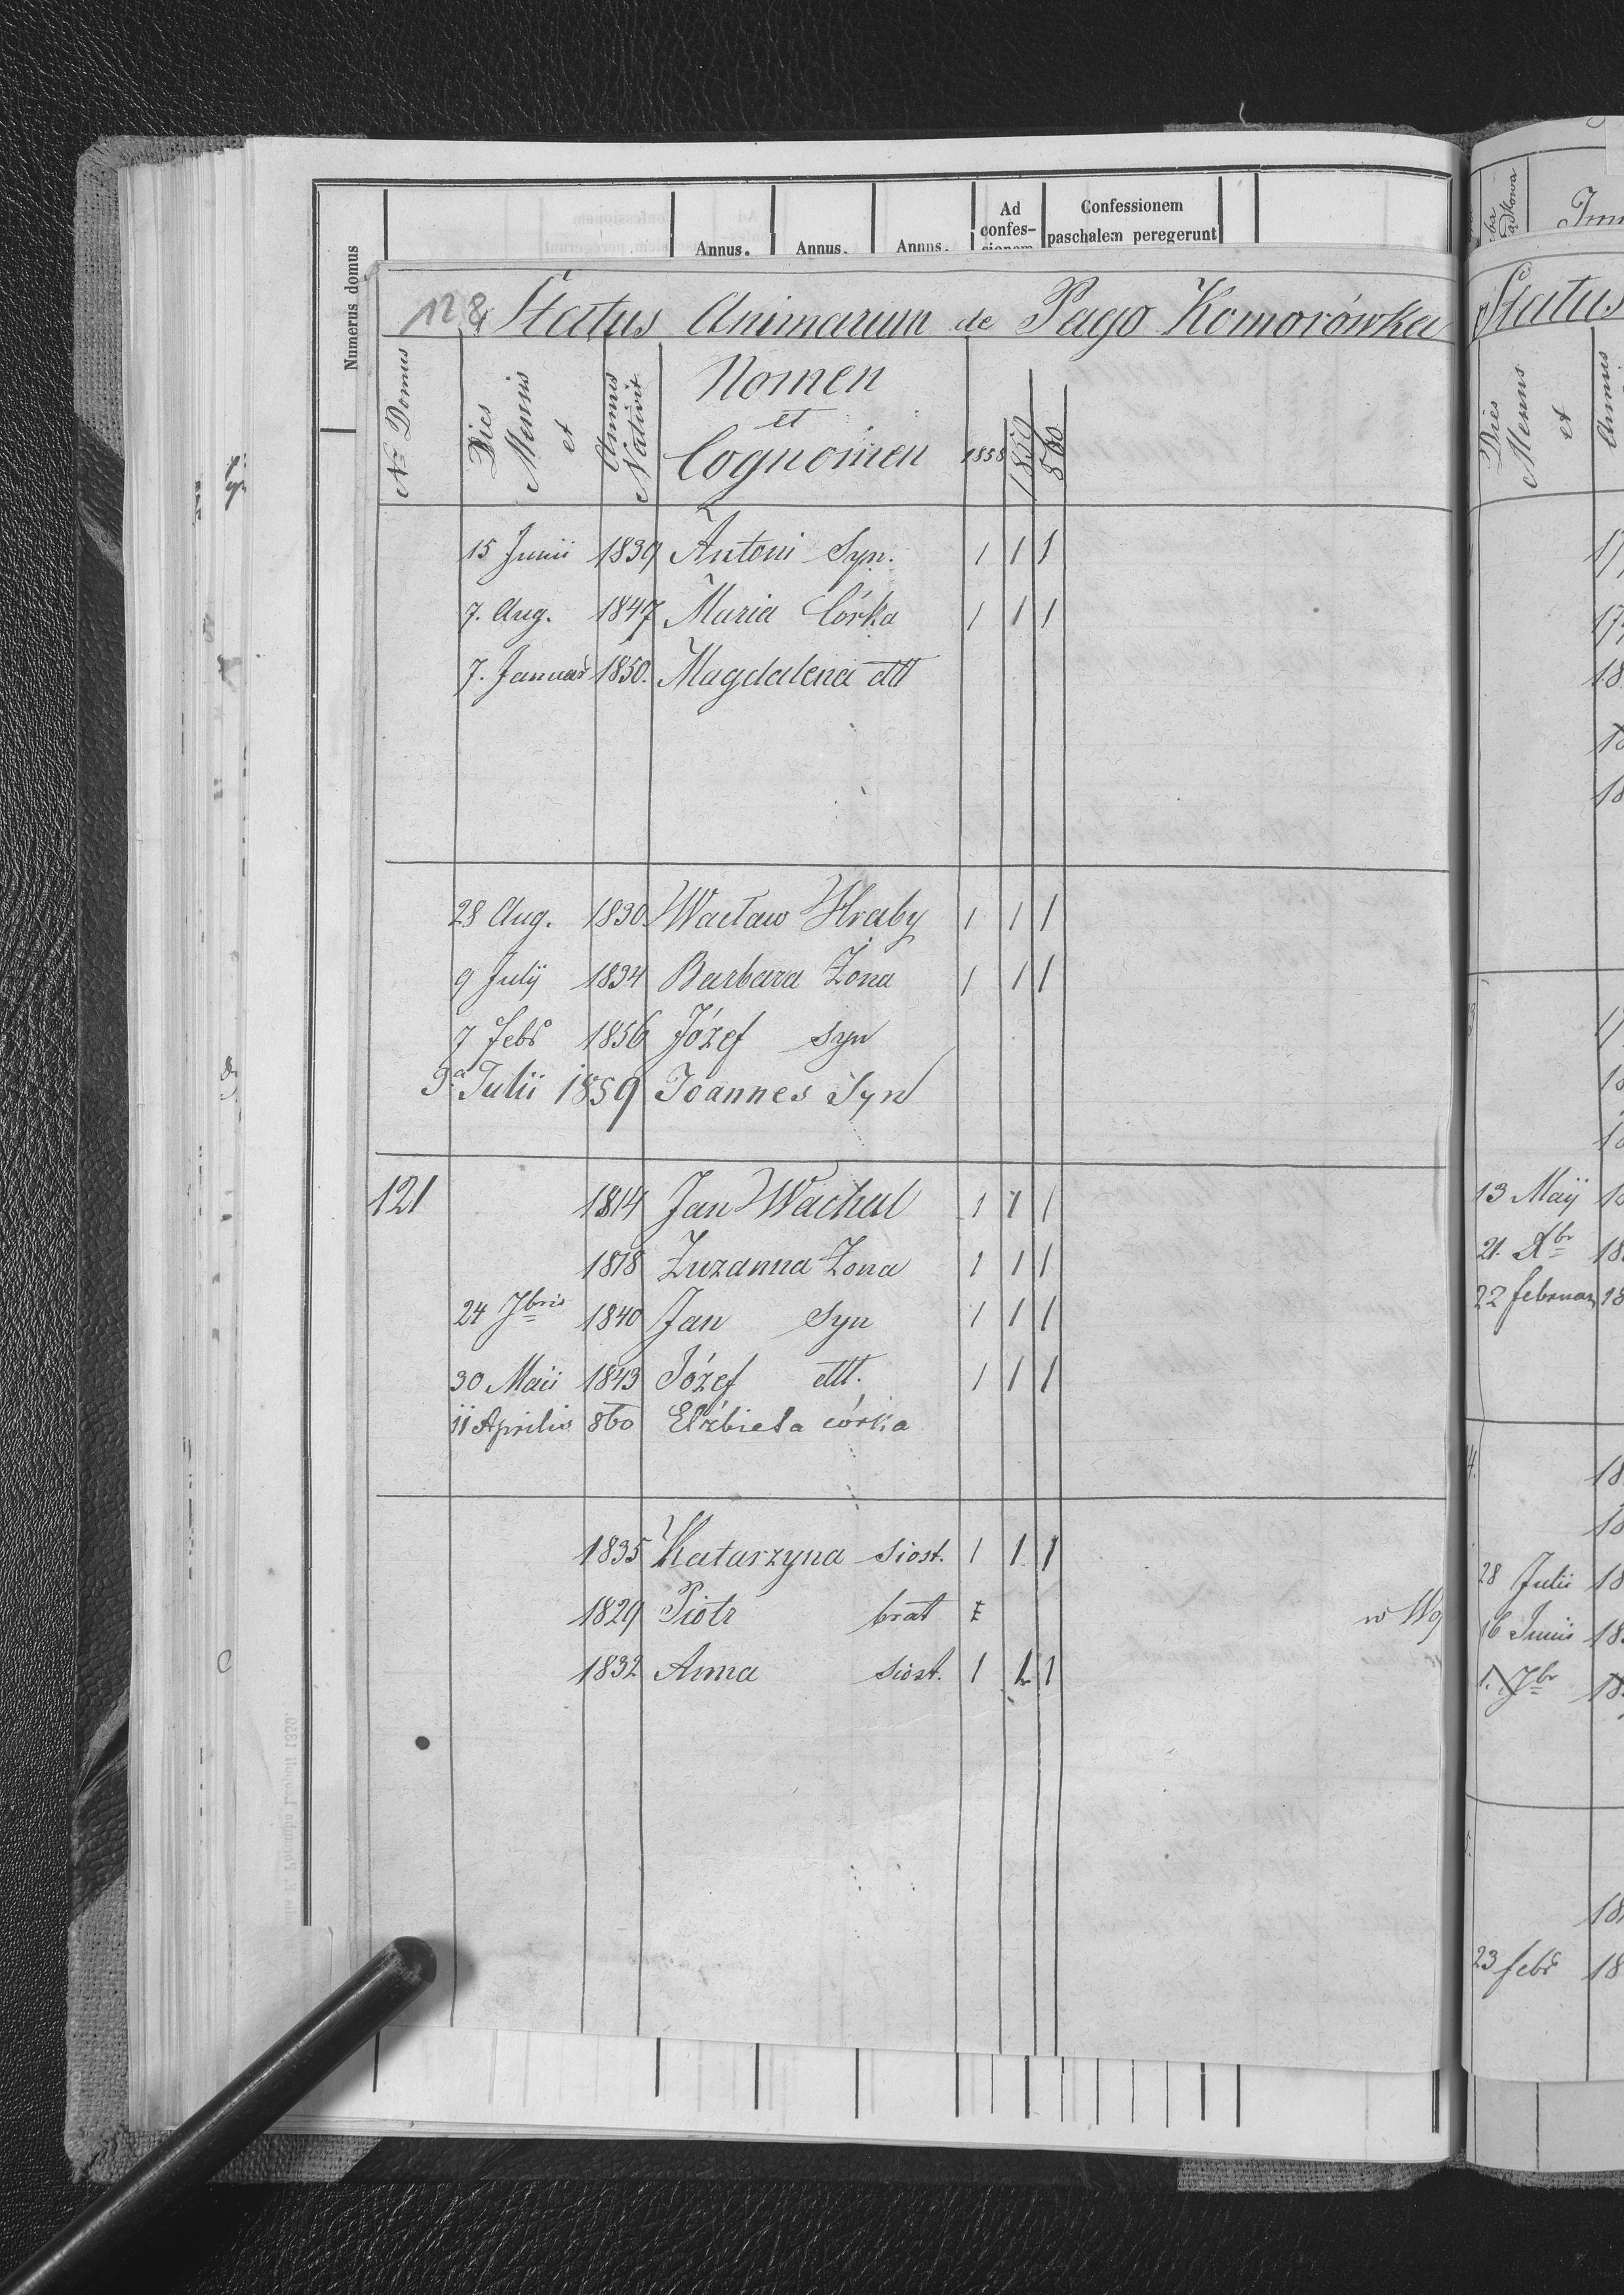 Numerus domus
Annus. Annus. Annus. Ad confes-sionem Confessionem paschalem peregerunt
128 Status Animarum de Pago Komorówka
No Domus Dies Mensis et Annus Nativit Nomen et Cognomen 1858 1859 860
15 Junii 1839 Antoni Syn. 1 1 1
7. Aug. 1847 Maria Córka 1 1 1
7. Januar 1850. Magdalena dtt
28 Aug. 1830 Wacław Hraby 1 1 1
9 Julÿ 1834 Barbara Żona 1 1 1
7 Febr 1856 Józef syn
3a Julii 1859 Joannes Syn
121 1814 Jan Wachal 1 1 1
1818 Zuzanna Żona 1 1 1
24 7bris 1840 Jan Syn 1 1 1
30 Maii 1843 Józef dtt. 1 1 1
11 Aprilis 860 Elżbieta córka
1835 Katarzyna siost. 1 1 1
1829 Piotr brat
w Wg
1832 Anna siost. 1 1 1
Status
Dies Mensis et Annus
13 Maÿ
21. Xbr 18
22 februar 18
28 Julii 18
16 Junii 18
1. 7br 18
23 febr 18